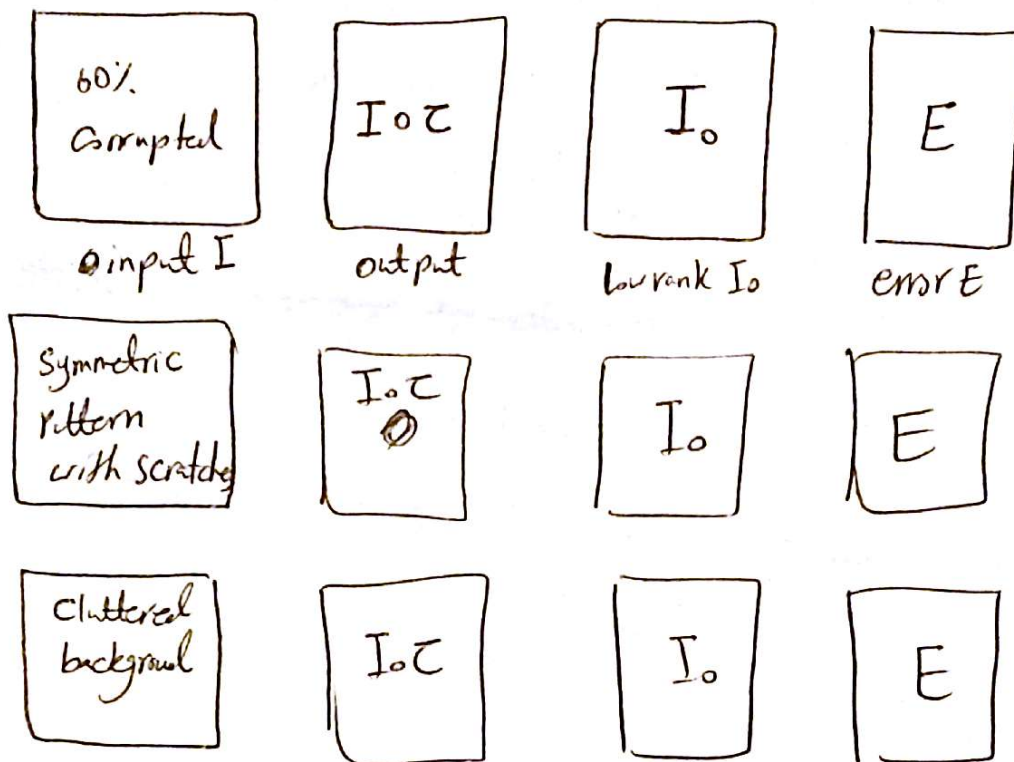 60%
Corrupted
I∘τ
I₀
E
input I
output
low rank I₀
error E
Symmetric
Pattern
with scratches
I∘τ
I₀
E
Cluttered
background
I∘τ
I₀
E